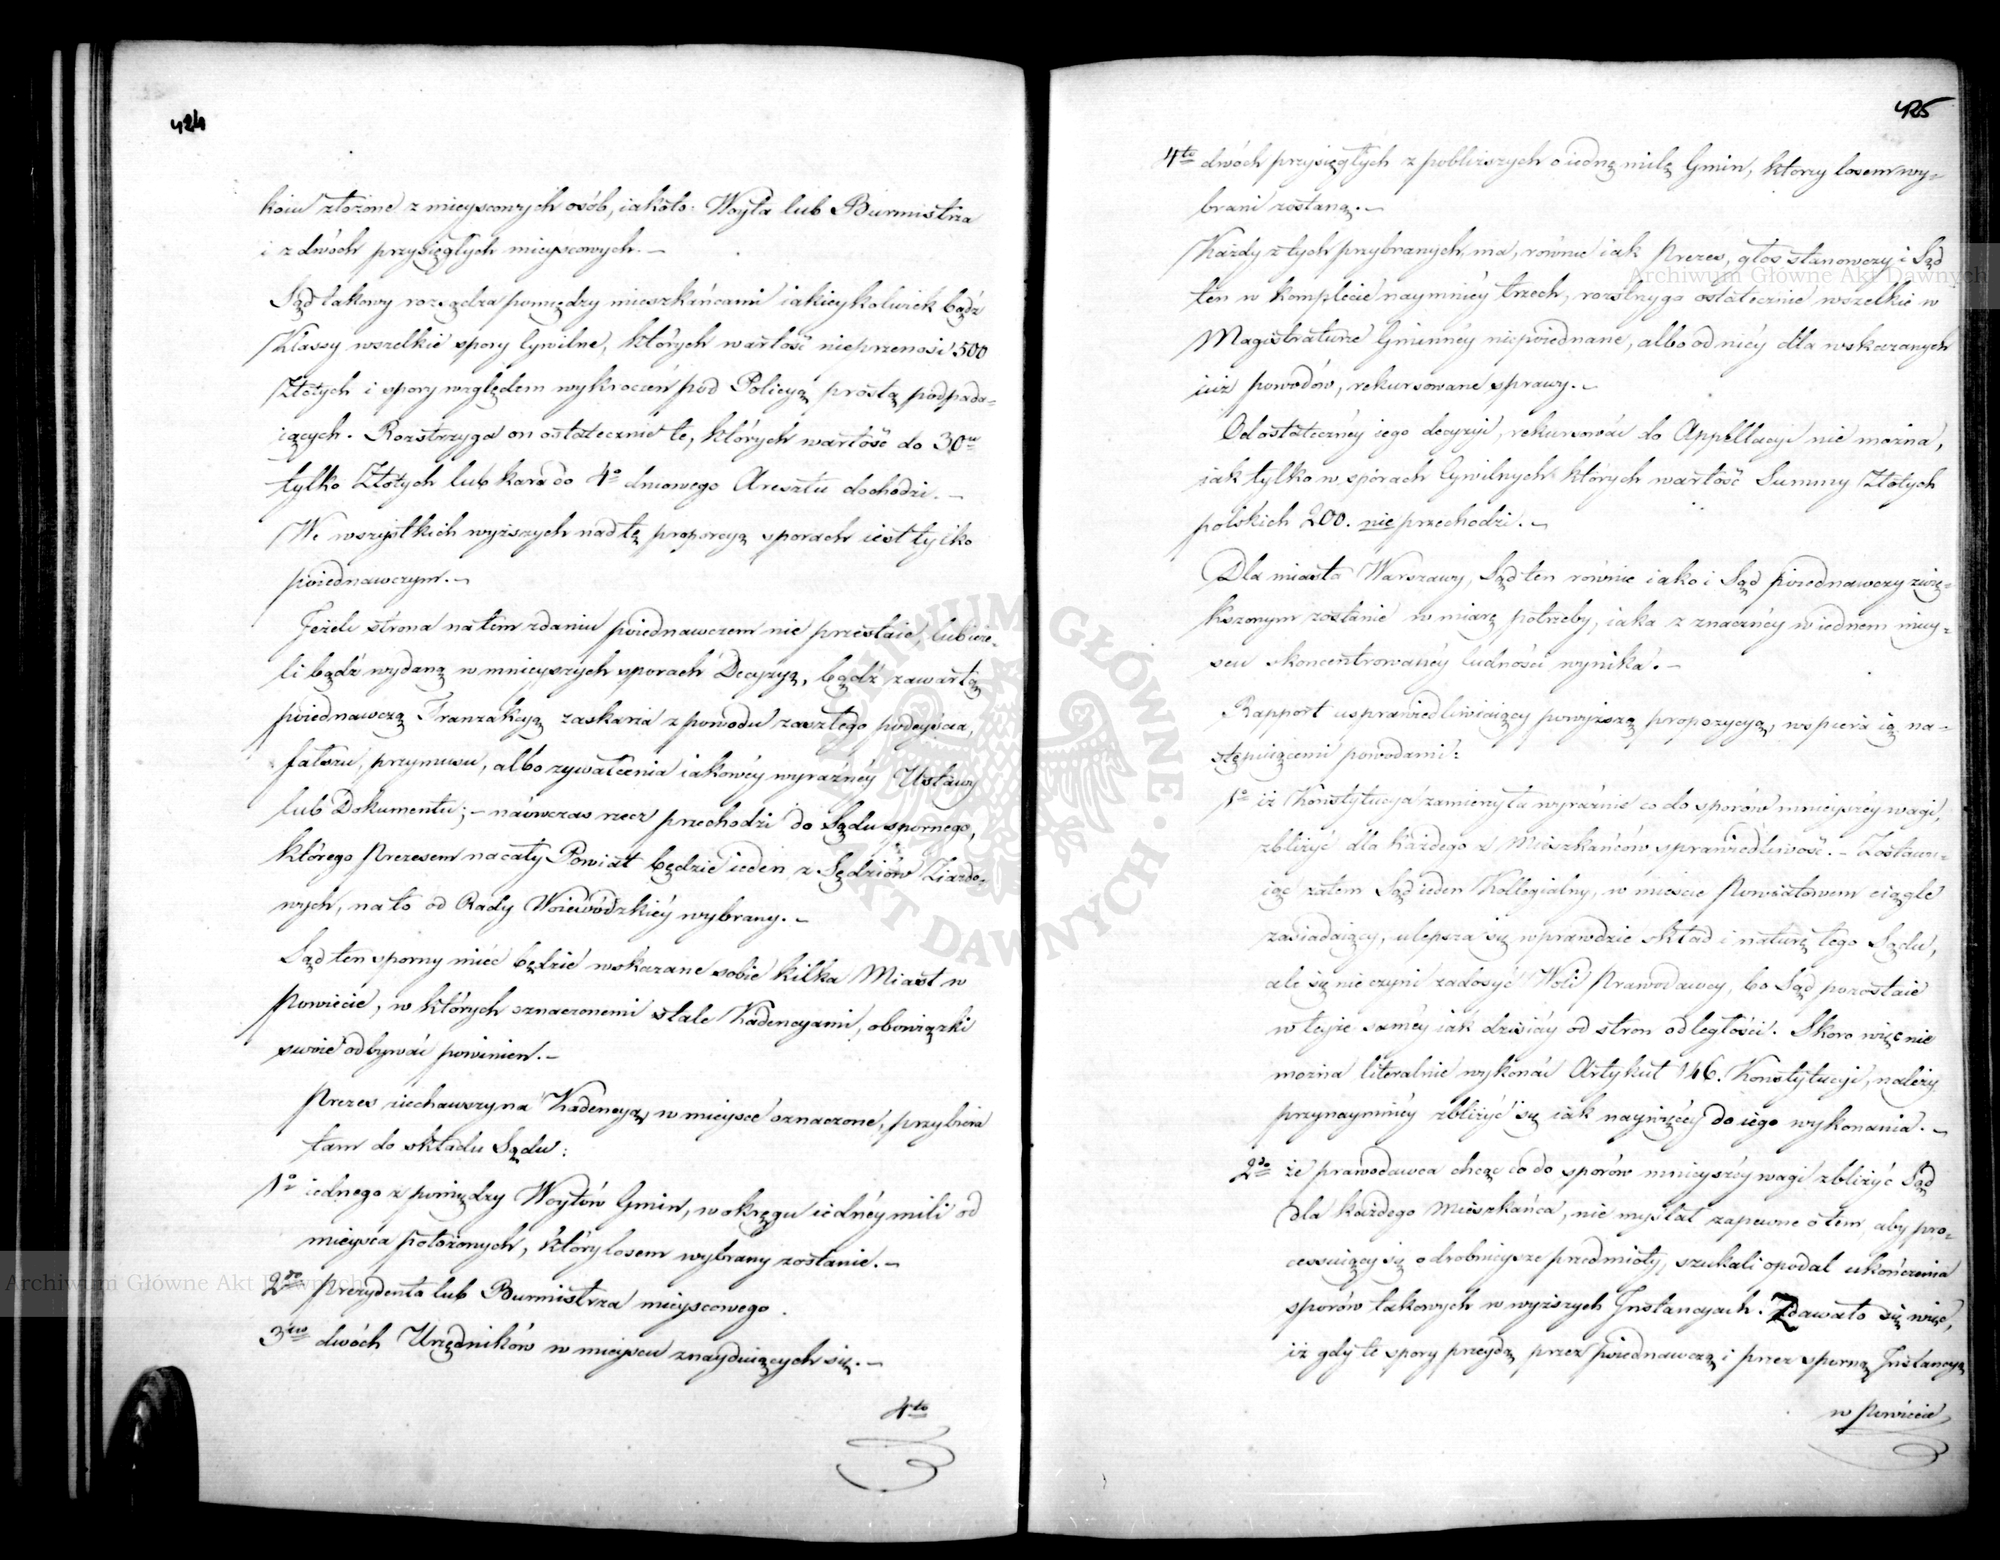 424
koiu złożone z mieyscowych osób, iakoto: Woyta lub Burmistrza
i z dwóch przysięgłych mieyscowych. –
Sąd takowy rozsądza pomiędzy mieszkańcami iakieykolwiek bądź
Klassy wszelkie spory Cywilne, których wartość nieprzenosi 500
Złotych i spory względem wykroczeń pod Policyą prostą podpada-
iących. Rozstrzyga on ostatecznie te, których wartość do 30tu
tylko Złotych lub kara do 4o dniowego Aresztu dochodzi. –
We wszystkich wyższych nad tę proporcyą sporach iest tylko
poiednawczym. –
Jeżeli strona na tem zdaniu poiednawczem nie przestaie, lub ieże-
li bądź wydaną w mnieyszych sporach Decyzyą, bądź zawartą
poiednawczą Tranzakcyą zaskarża z powodu zaszłego podeyścia,
fałszu, przymusu, albo zgwałcenia iakowéy wyraźnéy Ustawy
lub Dokumentu; – naówczas rzecz przechodzi do Sądu spornego,
którego Prezesem na cały Powiat będzie ieden z Sędziów Ziazdo-
wych, na to od Rady Woiewódzkiéy wybrany. –
Sąd ten sporny mieć będzie wskazane sobie kilka Miast w
Powiecie, w których oznaczonemi stale Kadencyami, obowiązki
swoie odbywać powinien. –
Prezes ziechawszy na Kadencyą, w mieysce oznaczone, przybiera
tam do składu Sądu:
1o iednego z pomiędzy Woytów Gmin, w okręgu iednéy mili od
mieysca położonych, który losem wybrany zostanie. –
2do Prezydenta lub Burmistrza mieyscowego.
3tio dwóch Urzędników w mieyscu znayduiących się. –
4to
425
4to dwóch przysięgłych z pobliższych o iednę milę Gmin, którzy losem wy-
brani zostaną. –
Każdy z tych przybranych, ma, równie iak Prezes, głos stanowczy i Sąd
ten w komplecie naymniéy trzech, rozstrzyga ostatecznie wszelkie w
Magistraturze Gminnéy niepoiednane, albo od niéy dla wskazanych
iuż powodów, rekursowane sprawy. –
Od ostatecznéy iego decyzyi, rekursować do Appellacyi nie można,
iak tylko w sporach Cywilnych których wartość Summy Złotych
polskich 200. nie przechodzi. –
Dla miasta Warszawy, Sąd ten równie iako i Sąd poiednawczy zwię-
kszonym zostanie w miarę potrzeby, iaka z znacznéy w iednem miey-
scu skoncentrowanéy ludności wynika. –
Rapport usprawiedliwiaiący powyższą propozycyą, wspiera ią na-
stępuiącemi powodami:
1o iż Konstytucya zamierzyła wyraźnie co do sporów mnieyszéy wagi,
zbliżyć dla każdego z Mieszkańców sprawiedliwość. – Zostawu-
iąc zatem Sąd ieden Kollegialny, w mieście Powiatowem ciągle
zasiadaiący, ulepsza się wprawdzie skład i naturę tego Sądu,
ale się nie czyni zadosyć Woli Prawodawcy, bo Sąd pozostaie
w teyże saméy iak dzisiay od stron odległości. Skoro więc nie
można literalnie wykonać Artykuł 146. Konstytucyi, należy
przynaymniéy zbliżyć się iak naywięcéy do iego wykonania. –
2do że prawodawca chcąc co do sporów mnieyszéy wagi zbliżyć Sąd
dla każdego Mieszkańca, nie myślał zapewne o tem, aby pro-
cessuiący się o drobnieysze przedmioty, szukali opodal ukończenia
sporów takowych w wyższych Instancyach. Zdawało się więc,
iż gdy te spory przeydą przez poiednawczą i przez sporną Instancyą
w Powiecie